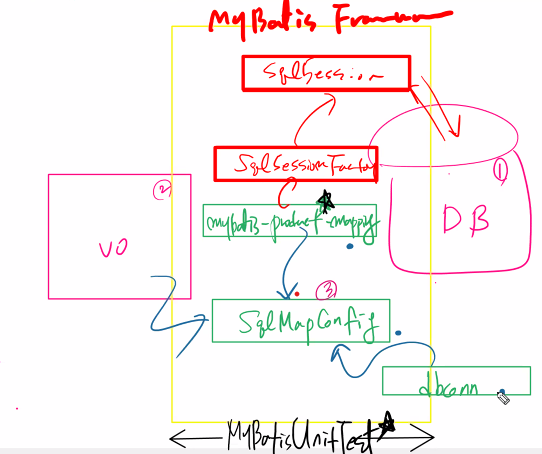 MyBatis
SqlSession
①
SqlSessionFactor
②
mybatis-product-mapping
DB
VO
③
SqlMapConfig
dbconn
MyBatisUnitTest